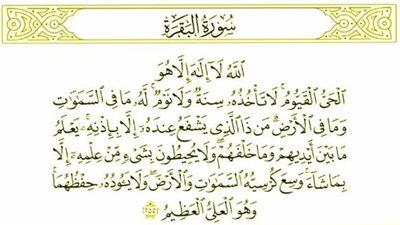 سُورَةُ البَقَرَة
اللَّهُ لَآ إِلَٰهَ إِلَّا هُوَ
الْحَىُّ الْقَيُّومُ ۚ لَا تَأْخُذُهُۥ سِنَةٌ وَلَا نَوْمٌ ۚ لَّهُۥ مَا فِى السَّمَٰوَٰتِ
وَمَا فِى الْأَرْضِ ۗ مَن ذَا الَّذِى يَشْفَعُ عِندَهُۥٓ إِلَّا بِإِذْنِهِۦ ۚ يَعْلَمُ
مَا بَيْنَ أَيْدِيهِمْ وَمَا خَلْفَهُمْ ۖ وَلَا يُحِيطُونَ بِشَىْءٍ مِّنْ عِلْمِهِۦٓ إِلَّا
بِمَا شَآءَ ۚ وَسِعَ كُرْسِيُّهُ السَّمَٰوَٰتِ وَالْأَرْضَ ۖ وَلَا يَـُٔودُهُۥ حِفْظُهُمَا ۚ
وَهُوَ الْعَلِىُّ الْعَظِيمُ ٢٥٥